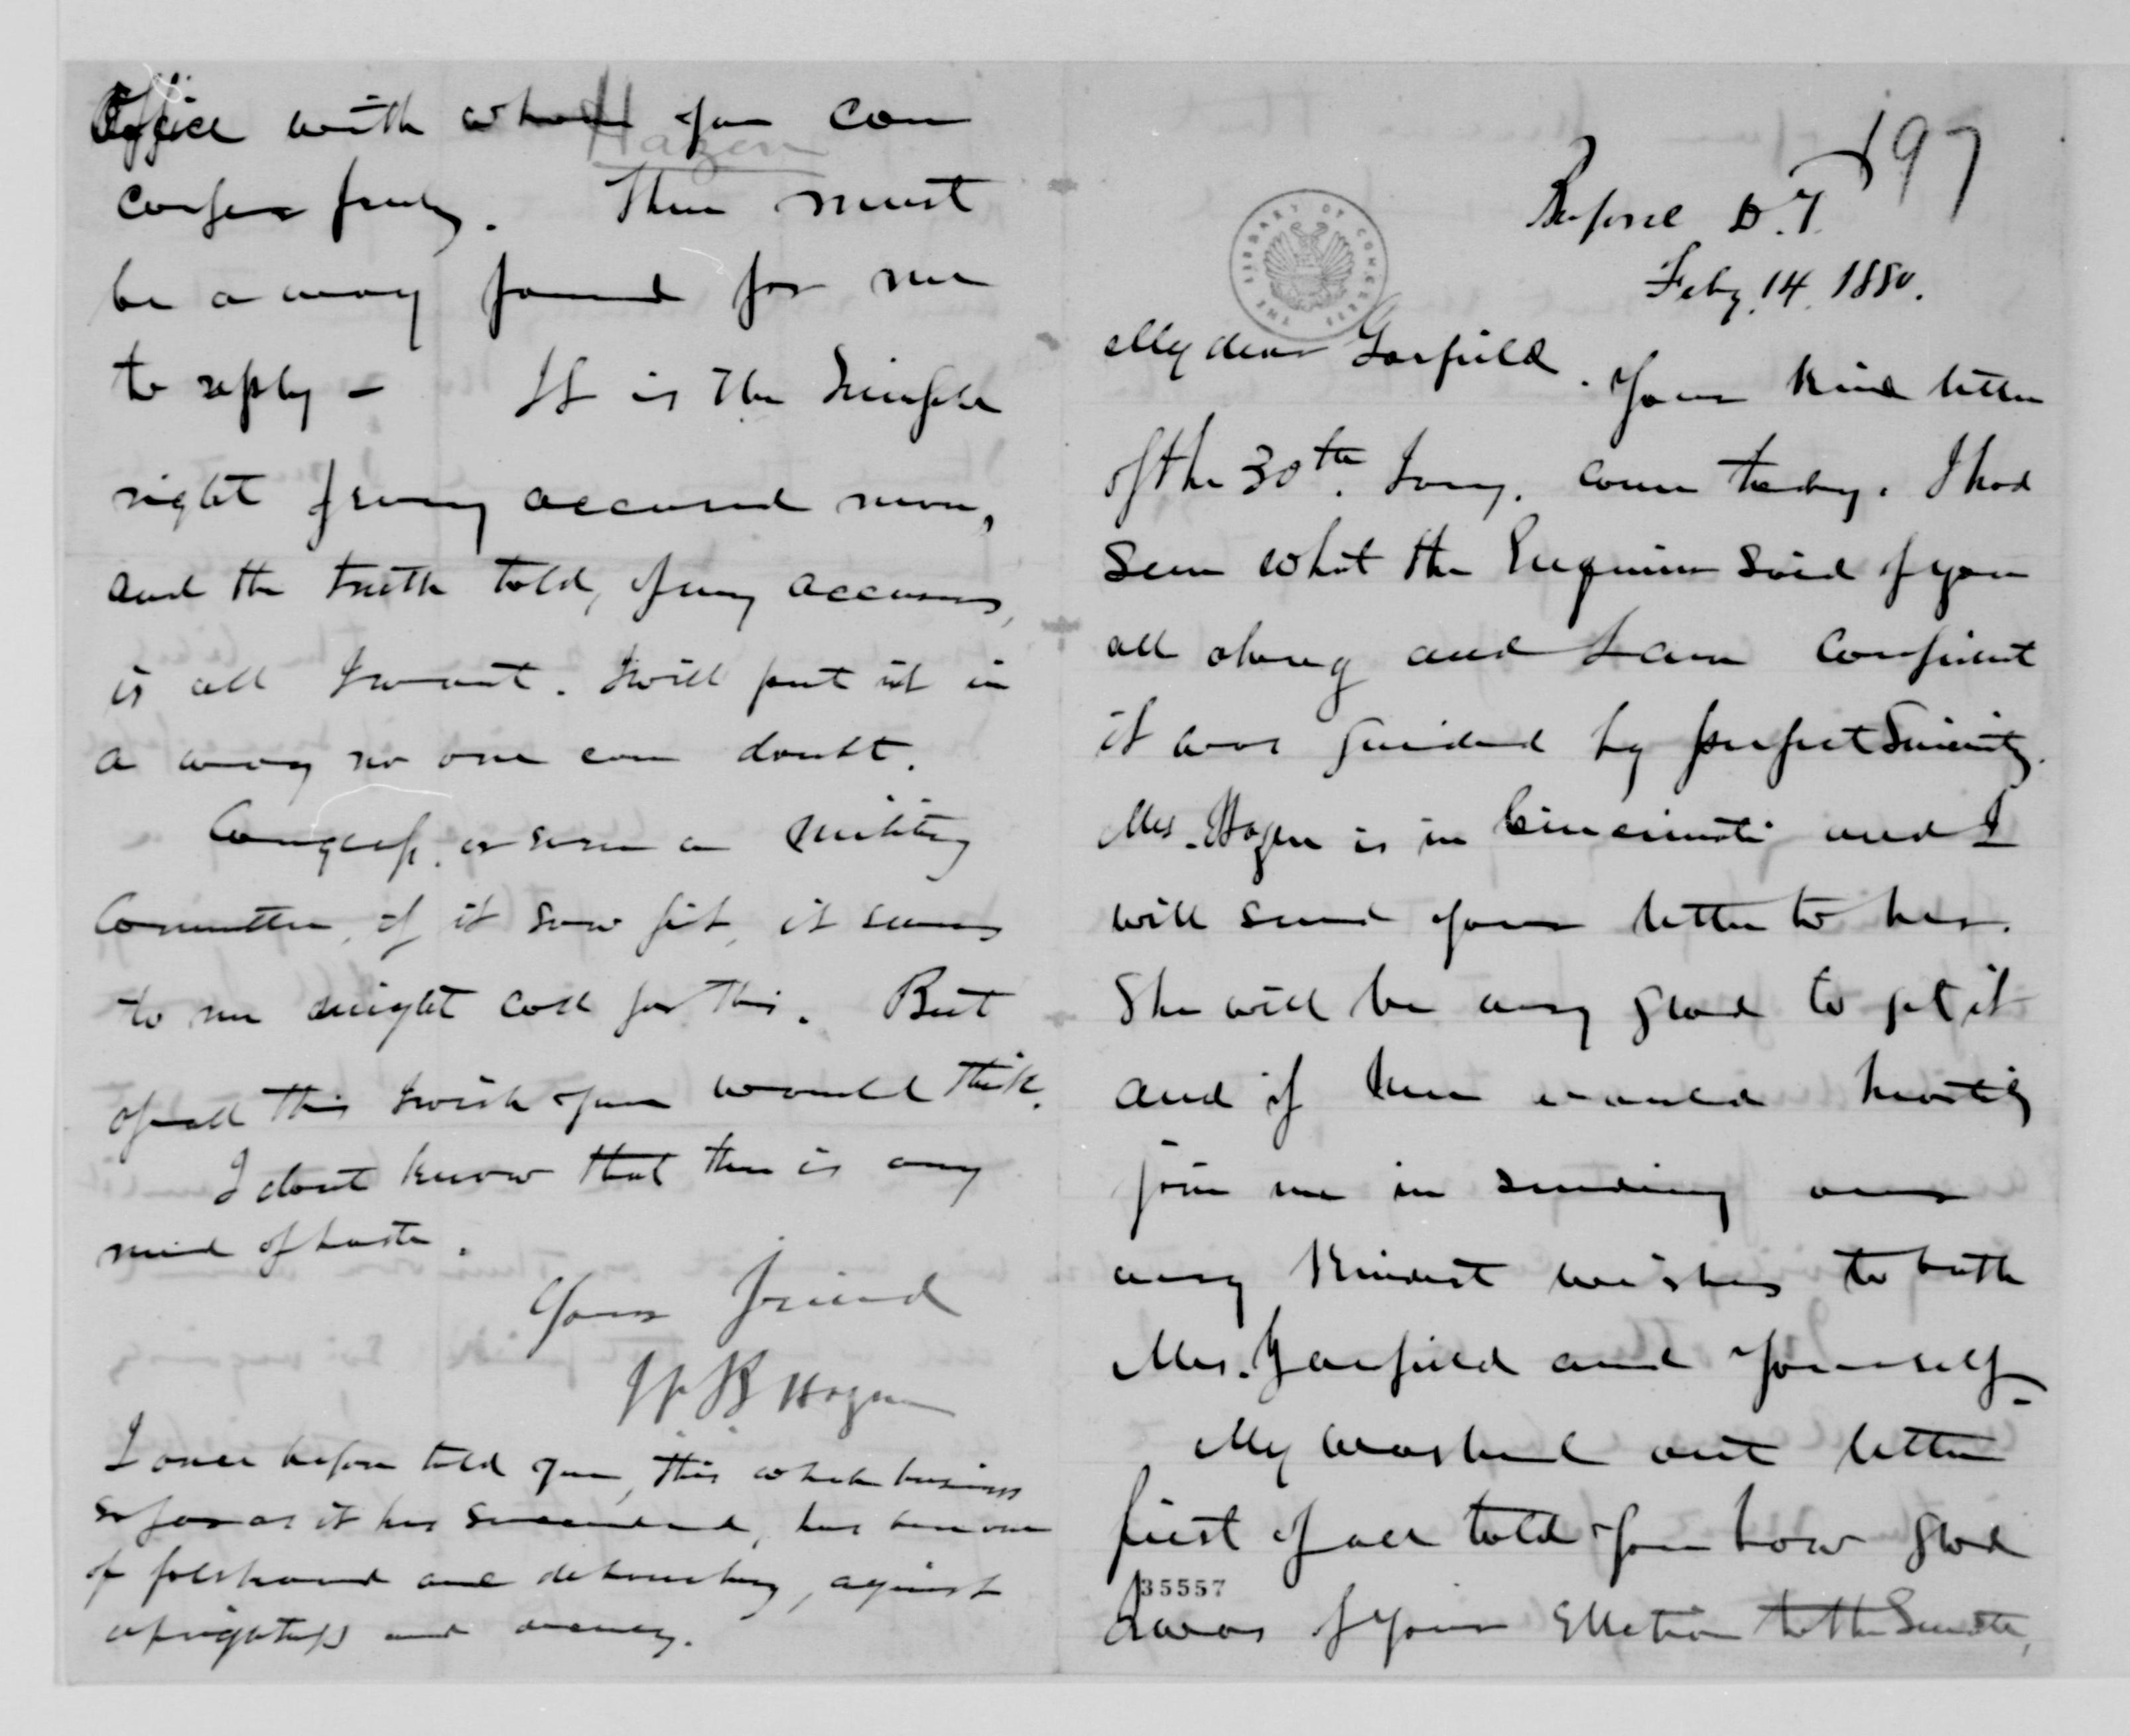 197
Buford D.T.
Feby. 14. 1880.
My dear Garfield. Your kind letter
of the 30th. Jany. came today. I had
seen what the Enquirer said of you
all along and I am confident
it was guided by perfect Sincerity.
Mrs. Hazen is in Cincinnati and I
will send your letter to her.
She will be very glad to get it
and if here would heartily
join me in sending our
very kindest wishes to both
Mrs. Garfield and yourself-
My washed out letter
first of all told you how glad
I was of your Election to the Senate,
35557
THE LIBRARY OF CONGRESS
Office with whom you can
Hazen
confer freely. There must
be a way found for me
to reply - It is the simple
right of every accused man,
and the truth told, of my accusers,
is all I want. I will put it in
a way no one can doubt.
Congress, or even a Military
Committee, if it saw fit, it seems
to me might call for this. But
of all this I wish you would think.
I dont know that there is any
need of haste.
Your friend
W B Hazen
I once before told you, this whole business
so far as it has succeeded, has been one
of falsehood and debauchery, against
uprightness and decency.